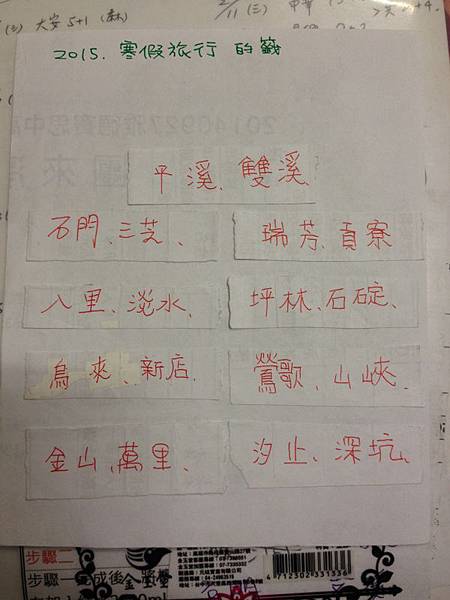 (三) 大安 5+1 (麻)
2/11 (三) 中華
2015. 寒假旅行 的籤
平溪、雙溪、
石門、三芝、
瑞芳、貢寮
八里、淡水、
坪林、石碇、
烏來、新店、
鶯歌、山峽、
金山、萬里、
汐止、深坑、
步驟二
步驟一完成後
4712302331336